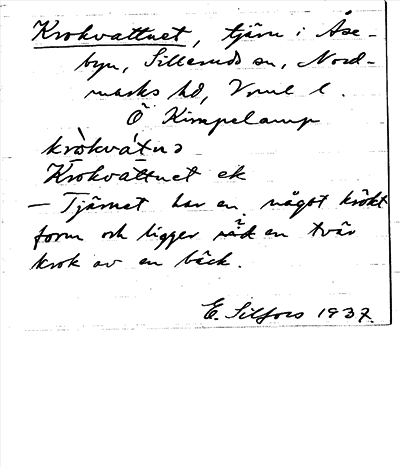 Krokvattnet, tjärn i Åse-
byn, Sillerud sn, Nord-
marks hd, Vrml l.
Ö Kimpelamp
kròkvátnə
Krokvattnet ek
— Tjärnet har en något krökt
form och ligger vid en tvär
krok av en bäck.
E. Silfors 1937.